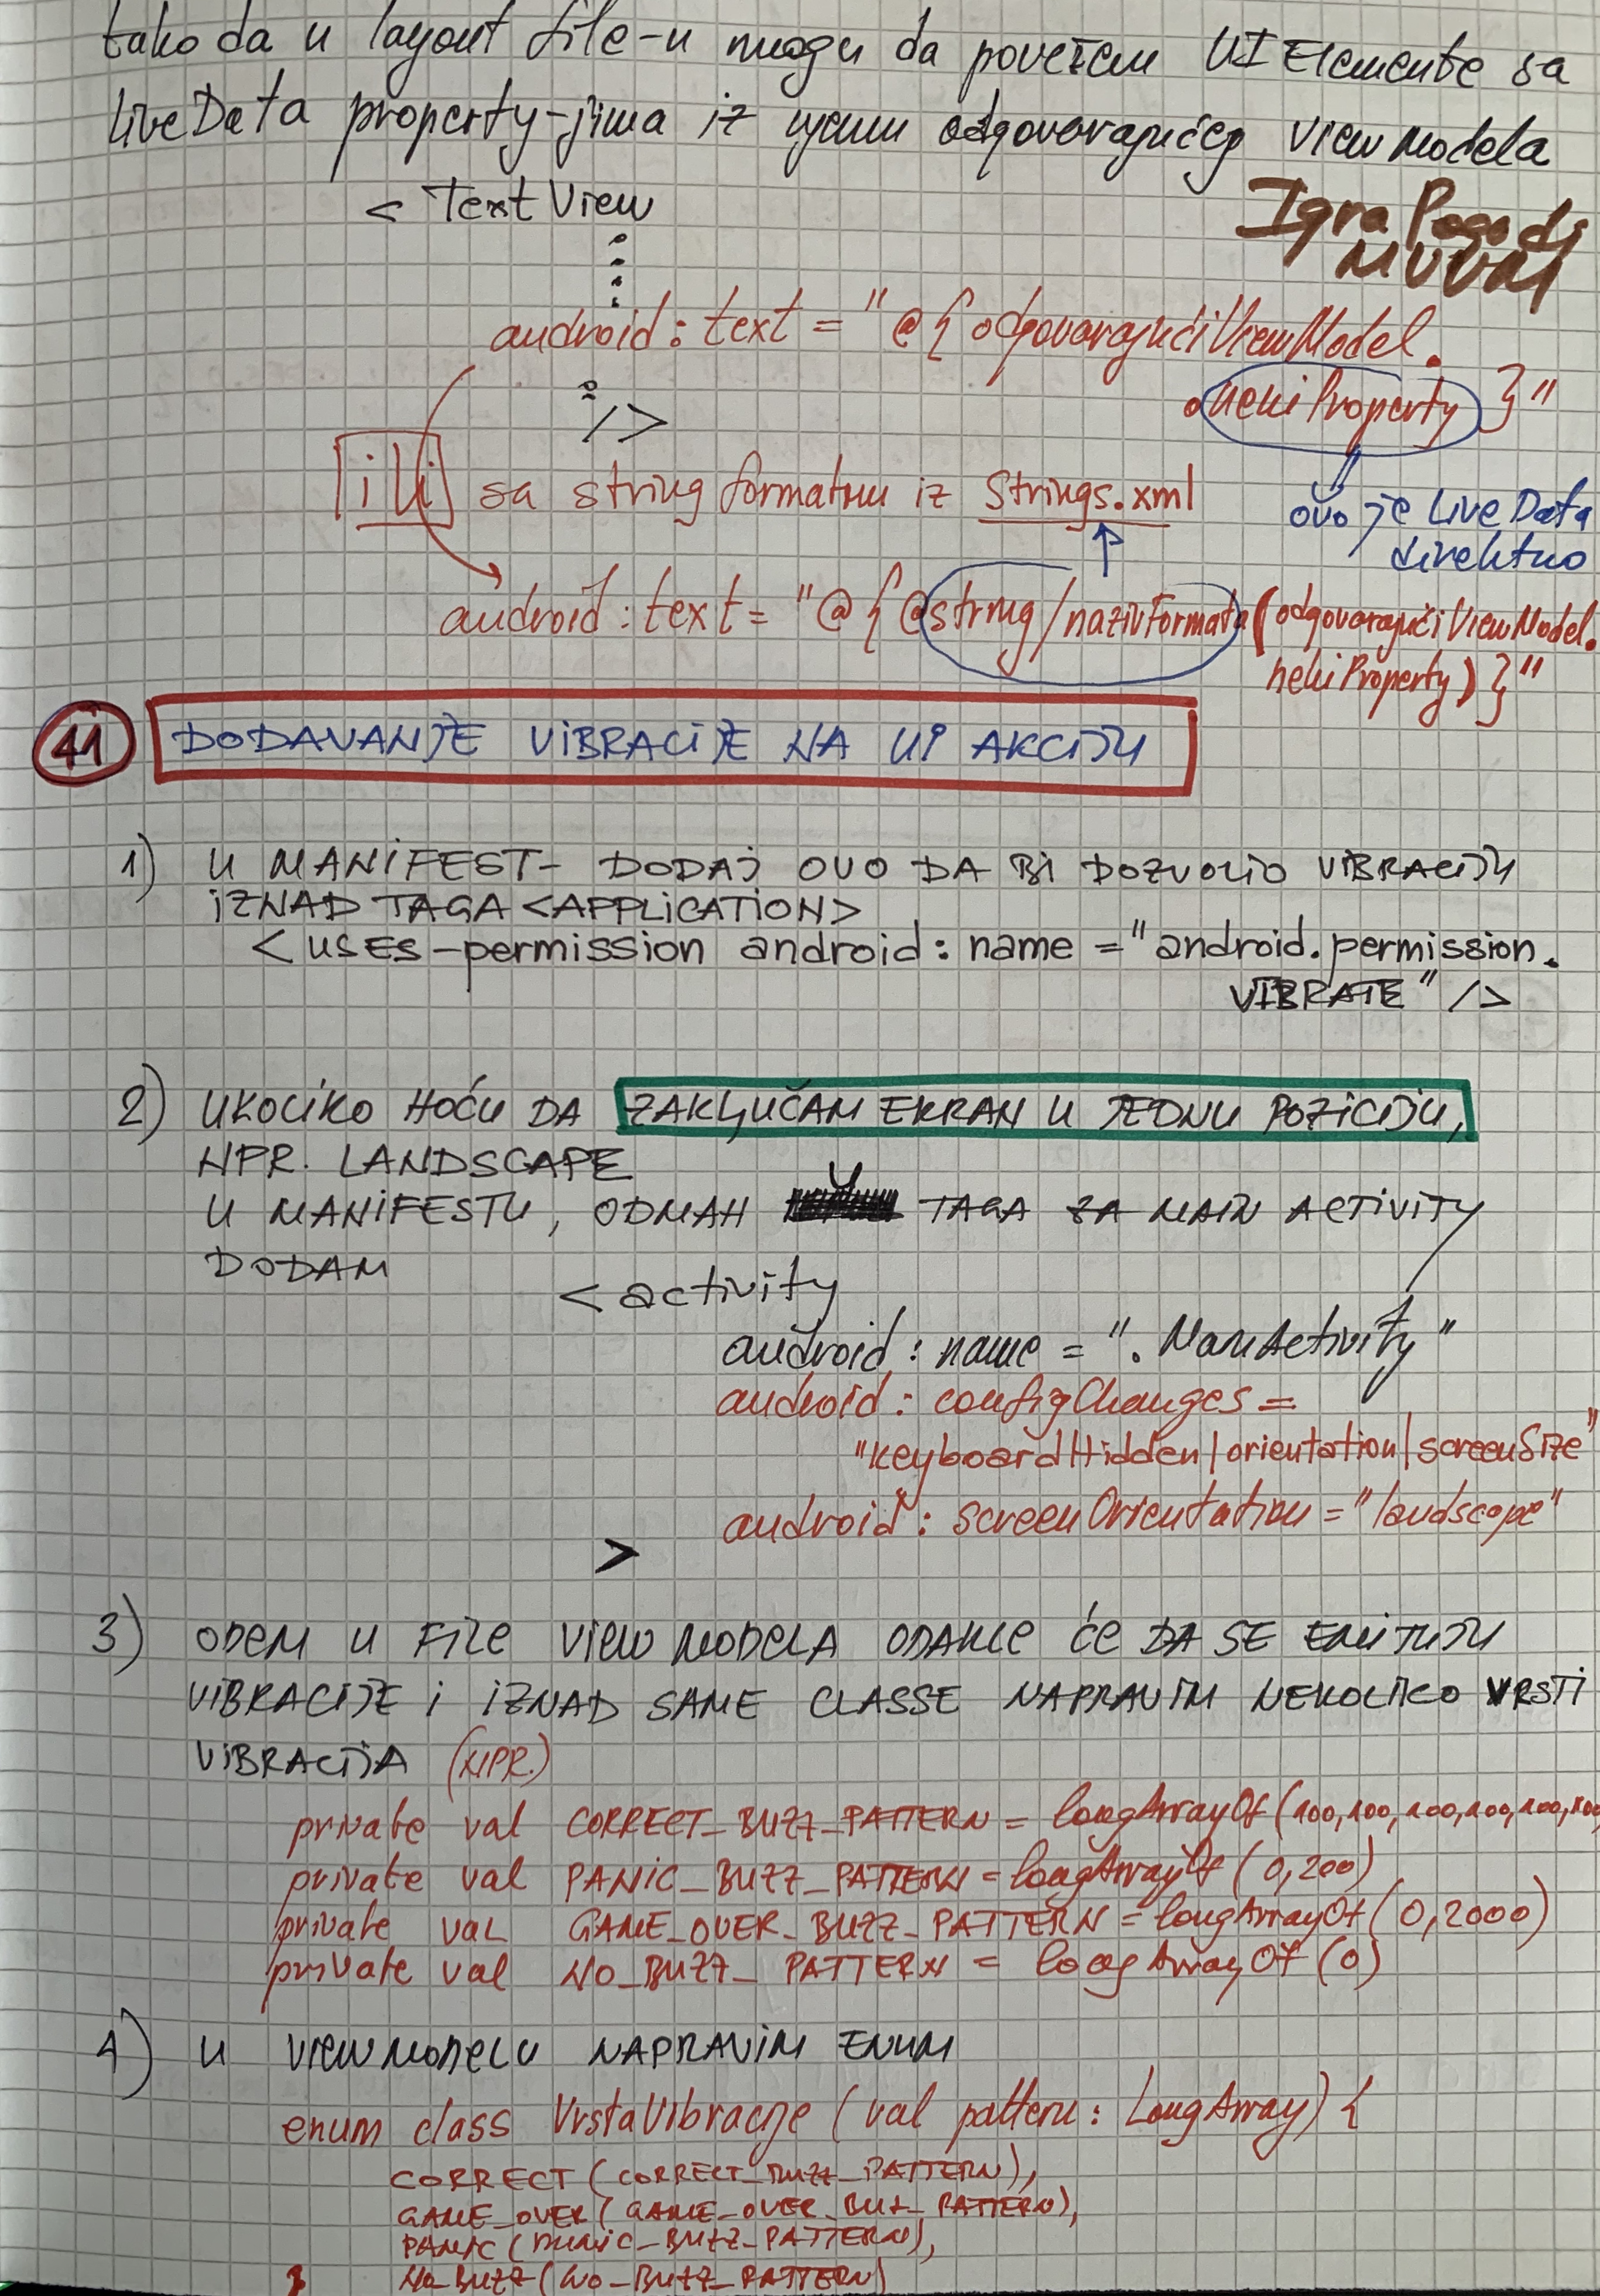 tako da u layout file-u mogu da povežem UI Elemente sa
LiveData property-jima iz njemu odgovarajućeg ViewModela
< TextView
Igra Pogodi
MVVM
android:text = "@{odgovarajućiViewModel.
.nekiProperty}"
/>
ili sa string formatom iz Strings.xml
ovo je LiveData
direktno
android:text = "@{@string/nazivFormata(odgovarajućiViewModel.
nekiProperty)}"
41 DODAVANJE VIBRACIJE NA UI AKCIJU
1) U MANIFEST- DODAJ OVO DA BI DOZVOLIO VIBRACIJU
IZNAD TAGA <APPLICATION>
<USES-permission android:name ="android.permission.
VIBRATE" />
2) UKOLIKO HOĆU DA ZAKLJUČAM EKRAN U JEDNU POZICIJU,
NPR. LANDSCAPE
U MANIFESTU, ODMAH U TAGA ZA MAIN ACTIVITY
DODAM
< activity
android:name = ".MainActivity"
android:configChanges =
"keyboardHidden|orientation|screenSize"
android:screenOrientation="landscape"
>
3) ODEM U FILE VIEWMODELA ODAKLE ĆE DA SE EMITUJU
VIBRACIJE I IZNAD SAME CLASSE NAPRAVIM NEKOLIKO VRSTI
VIBRACIJA (NPR.)
private val CORRECT_BUZZ_PATTERN = longArrayOf(100,100,100,100,100,100
private val PANIC_BUZZ_PATTERN = longArrayOf(0,200)
private val GAME_OVER_BUZZ_PATTERN = longArrayOf(0,2000)
private val NO_BUZZ_PATTERN = longArrayOf(0)
4) U VIEWMODELU NAPRAVIM ENUM
enum class VrstaVibracije (val pattern: LongArray) {
CORRECT(CORRECT_BUZZ_PATTERN),
GAME_OVER(GAME_OVER_BUZZ_PATTERN),
PANIC(PANIC_BUZZ_PATTERN),
NO_BUZZ(NO_BUZZ_PATTERN)
}